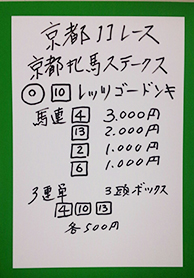 京都11レース
京都牝馬ステークス
◎ 10 レッツゴードンキ
馬連 4 3.000円
13 2.000円
2 1.000円
6 1.000円
3連単 3頭ボックス
4 10 13
各500円